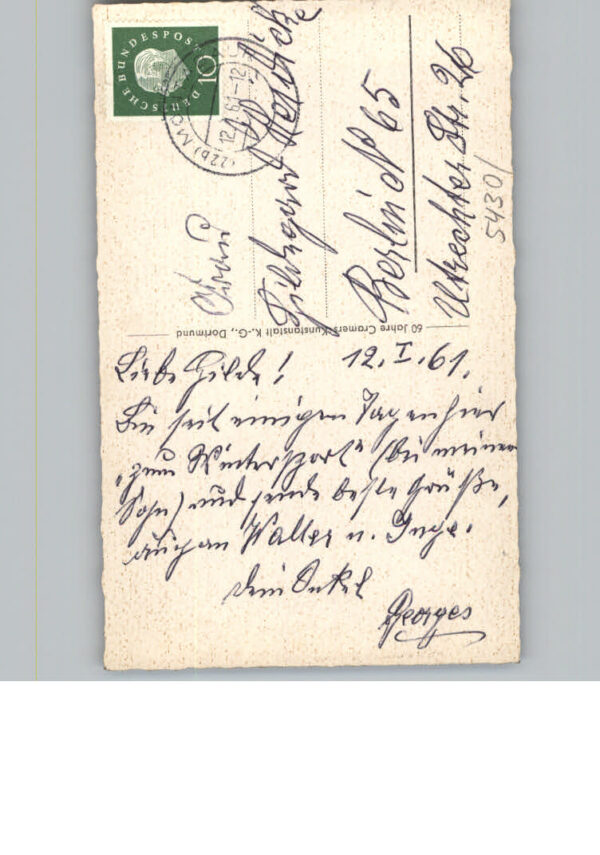 DEUTSCHE BUNDESPOST
10
(22b)
12.1.61-12
Frau
Hildegard
Berlin N 65
Utrechter Str. 26
54301
60 Jahre Cramers Kunstanstalt K.-G., Dortmund
12.I.61.
Liebe Hilde!
Bin seit einigen Tagen hier
"zum Wintersport" (bei meinem
Sohn) und sende beste Grüße,
auch an Walter u. Inge.
Dein Onkel
Georges